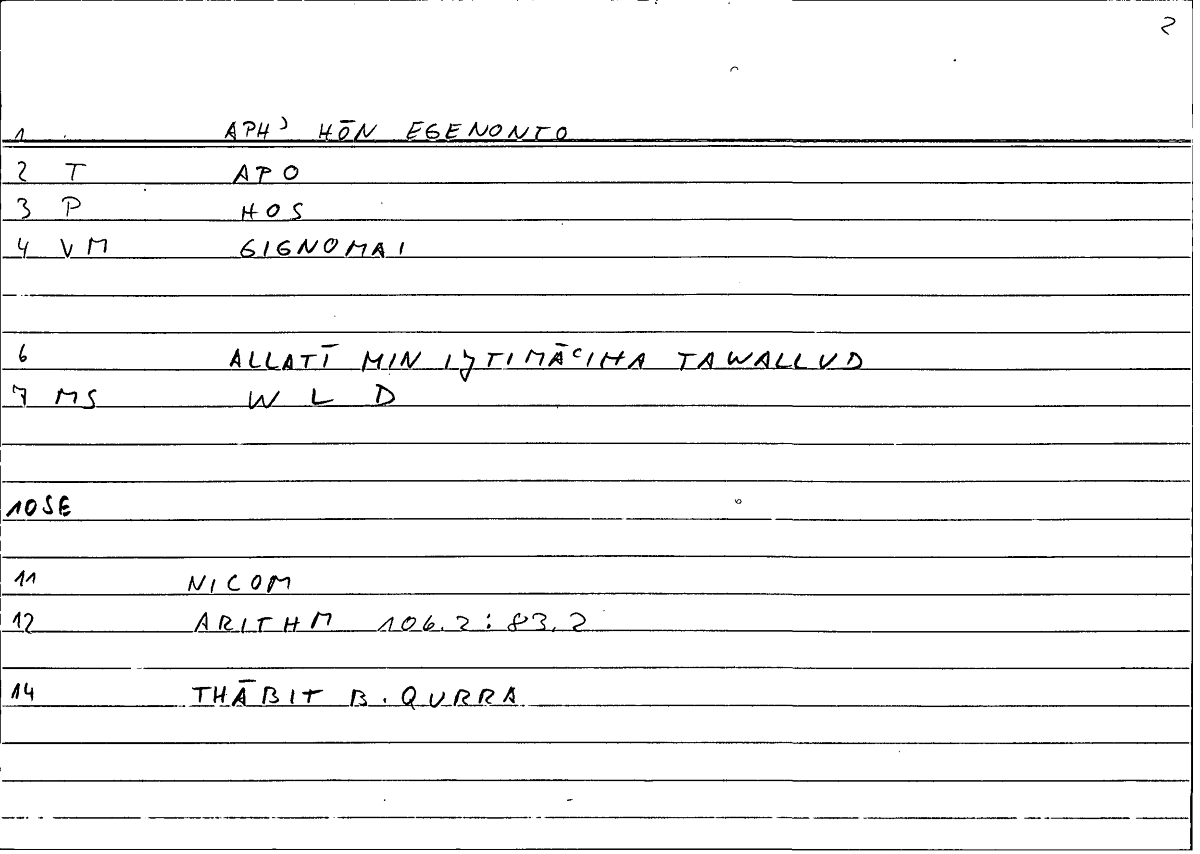 2
1 APHʾ HŌN EGENONTO
2 T APO
3 P HOS
4 VM GIGNOMAI
6 ALLATĪ MIN IJTIMĀʿIHA TAWALLUD
7 MS W L D
10 SE
11 NICOM
12 ARITHM 106.2 : 83.2
14 THĀBIT B. QURRA